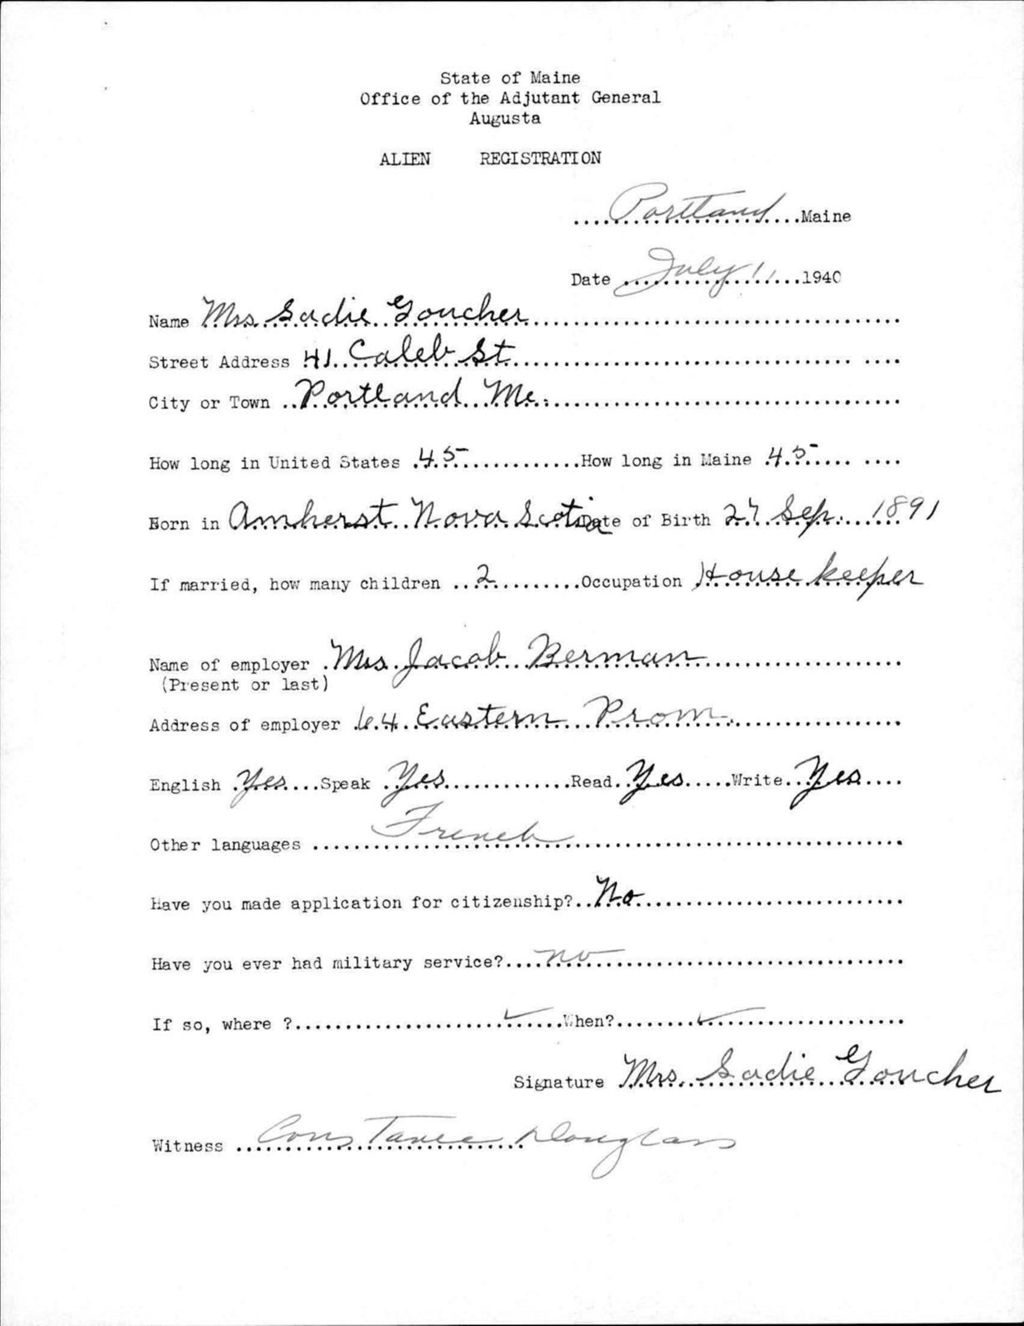 State of Maine
Office of the Adjutant General
Augusta
ALIEN REGISTRATION
Portland Maine
Date July 11 1940
Name Mrs Sadie Goucher
Street Address 41 Caleb St
City or Town Portland Me.
How long in United States 45 How long in Maine 45
Born in Amherst Nova Scotia Date of Birth 27 Sep. 1891
If married, how many children 2 Occupation House keeper
Name of employer Mrs. Jacob Berman
(Present or last)
Address of employer 64 Eastern Prom.
English Yes Speak Yes Read Yes Write Yes
Other languages French
Have you made application for citizenship? No
Have you ever had military service? no
If so, where ? ✓ When? ✓
Signature Mrs. Sadie Goucher
Witness Constance Douglass